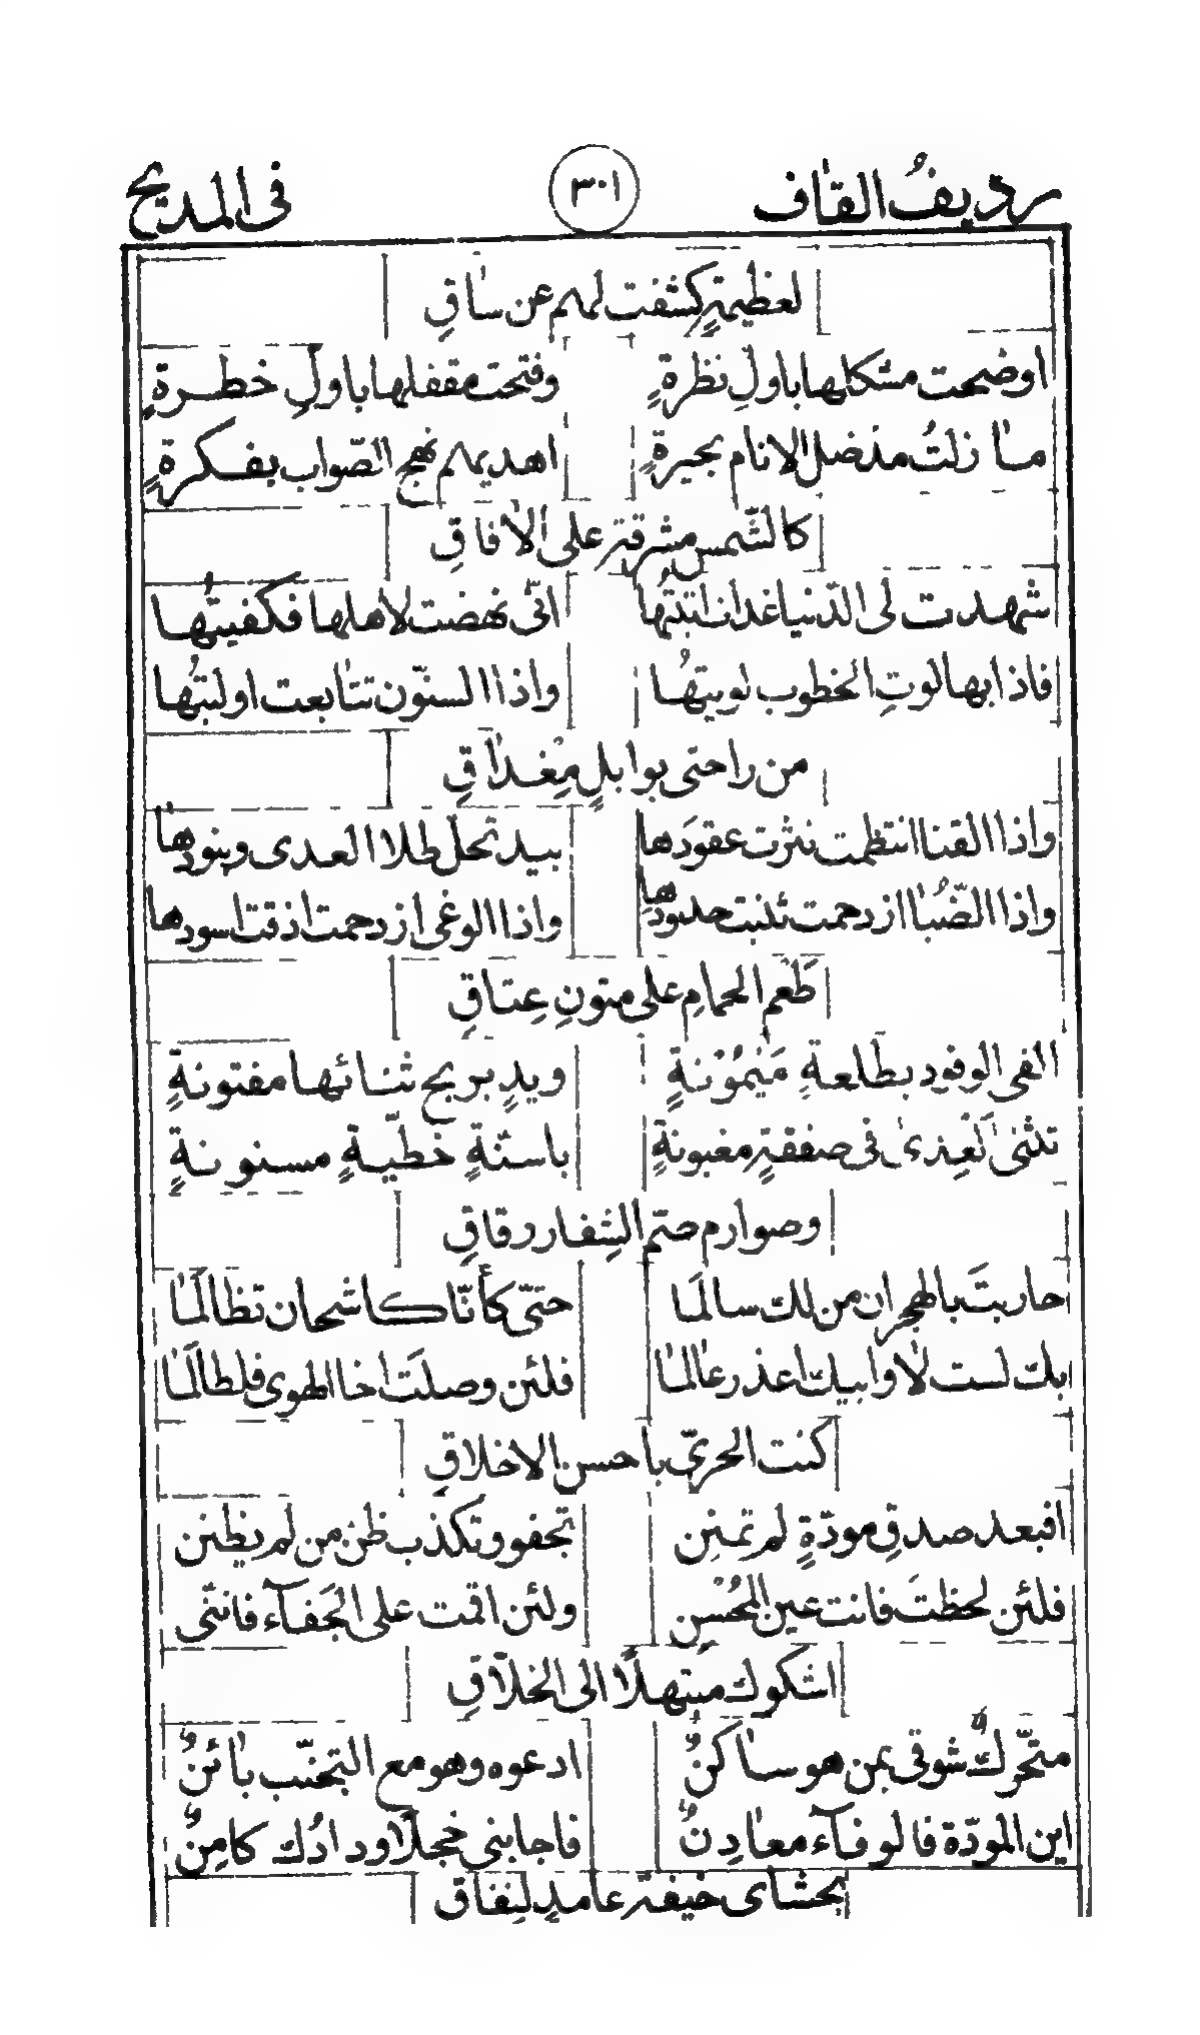 رديفُ القاف ٣٠١ فى المديح
لعظيمةٍ كشفت لهم عن ساقِ
اوضحت مشكلها باولِ نظرةٍ وفتحت مقفلها باولِ خطرةٍ
ما زلتُ مذ ضل الانام بحيرةٍ اهديهم نهج الصّواب بفكرةٍ
كالشّمس مشرقة على الافاقِ
شهدت لى الدّنيا غداة اتيتُها انّى نهضت لاهلها فكفيتُها
فاذا بها لوتِ الخطوب لويتهُا واذا السنّون تتابعت اوليتُها
من راحتى بوابلٍ مِغداقِ
واذا القنا انتظمت نثرت عقودَها بيد تحل طلا العدى وبنودها
واذا الضُّبا ازدحمت ثنيت حدودَها واذا الوغى ازدحمت اذقت اسودها
طَعْم الحمامِ على متونِ عِتاقِ
الفى الوفود بطلعةٍ مَيْمُوْنةٍ ويدٍ بربح ثنائها مفتونةٍ
تثنى العِدىٰ فى صفقةٍ مغبونةٍ باسنّةٍ خطّيةٍ مسنونةٍ
وصوارم صتم الشِفار رقاقِ
حاربتَ بالهجران من لك سالمَا حتىّ كأنّا كاشحان تظالمَا
بك لست لا وابيك اعذر عالما فلئن وصلتَ اخا الهوى فلطالمَا
كنت الحرىّ باحسن الاخلاقِ
افبعد صدقِ مودّةٍ لم تمنِن تجفو وتكذب ظنّ من لم يظنن
فلئن لحظتَ فانت عين المحُسْنِ ولئن اقمت على الجَفآء فانّنى
اشكوك مبتهلًا الى الخلاّقِ
متحّركٌ شوقى بمن هو ساكنٌ ادعوه وهو مع التجنّب بائنٌ
اين المودّة فالوفآء معادِنٌ فاجابنى خجلًا ودادُك كامِنٌ
بحشاى خيفة عامدٍ لنِفاق